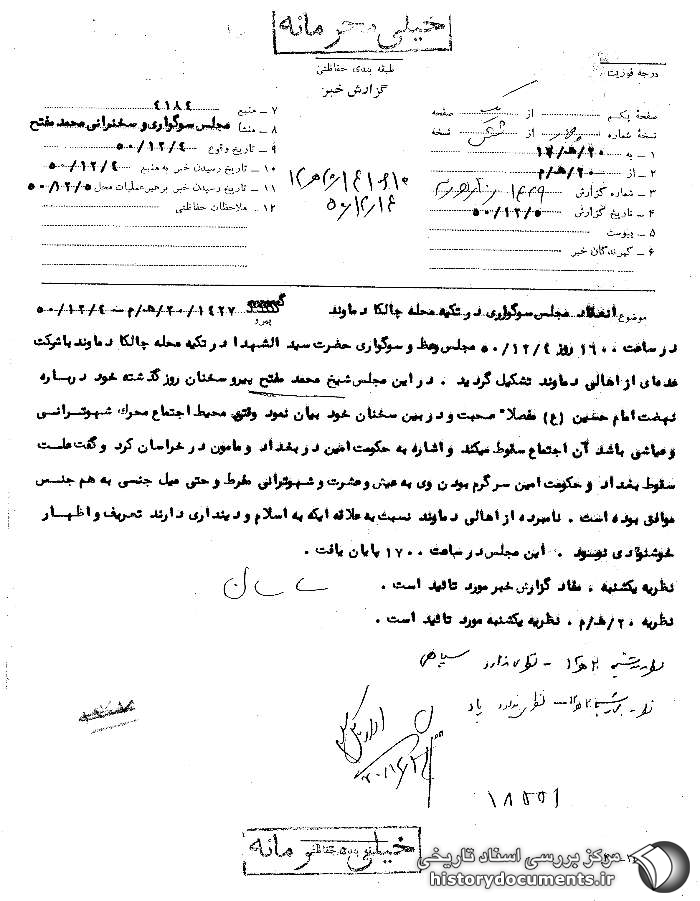 خیلی محرمانه
طبقه بندی حفاظتی
گزارش خبر
درجه فوریت
صفحهٔ یکم از یک صفحه
نسخهٔ شماره چهار از شش نسخه
۱ – به ۲۰/ھ/۱۲
۲ – از ۲۰/ھ/م
۳ – شماره گزارش
۴ – تاریخ گزارش ۵۰/۱۲/۵
۵ – پیوست
۶ – گیرندگان خبر
۷ – منبع ۴۱۸۴
۸ – منشأ مجلس سوگواری و سخنرانی محمد مفتح
۹ – تاریخ وقوع ۵۰/۱۲/۴
۱۰ – تاریخ رسیدن خبر به منبع ۵۰/۱۲/۴
۱۱ – تاریخ رسیدن خبر برهبر عملیات محل ۵۰/۱۲/۵
۱۲ – ملاحظات حفاظتی
موضوع انعقاد مجلس سوگواری در تکیه محله چالکا دماوند
پیرو ۲۰/۱۴۲۷/ھ/م – ۵۰/۱۲/۴
در ساعت ۱۶۰۰ روز ۵۰/۱۲/۴ مجلس وعظ و سوگواری حضرت سید الشهدا در تکیه محله چالکا دماوند با شرکت
عده‌ای از اهالی دماوند تشکیل گردید . در این مجلس شیخ محمد مفتح پیرو سخنان روز گذشته خود درباره
نهضت امام حسین (ع) مفصلاً صحبت و در بین سخنان خود بیان نمود وقتی محیط اجتماع محرک شهوترانی
و عیاشی باشد آن اجتماع سقوط میکند و اشاره به حکومت امین در بغداد و مامون در خراسان کرد و گفت علت
سقوط بغداد و حکومت امین سرگرم بودن وی به عیش و عشرت و شهوترانی مفرط و حتی میل جنسی به هم جنس
موافق بوده است . نامبرده از اهالی دماوند نسبت به علاقه ایکه به اسلام و دینداری دارند تعریف و اظهار
خوشنودی نمود . این مجلس در ساعت ۱۷۰۰ پایان یافت .
نظریه یکشنبه ، مفاد گزارش خبر مورد تائید است .
نظریه ۲۰/ھ/م ، نظریه یکشنبه مورد تائید است .
۱۸۵۵۱
خیلی محرمانه
مرکز بررسی اسناد تاریخی
historydocuments.ir